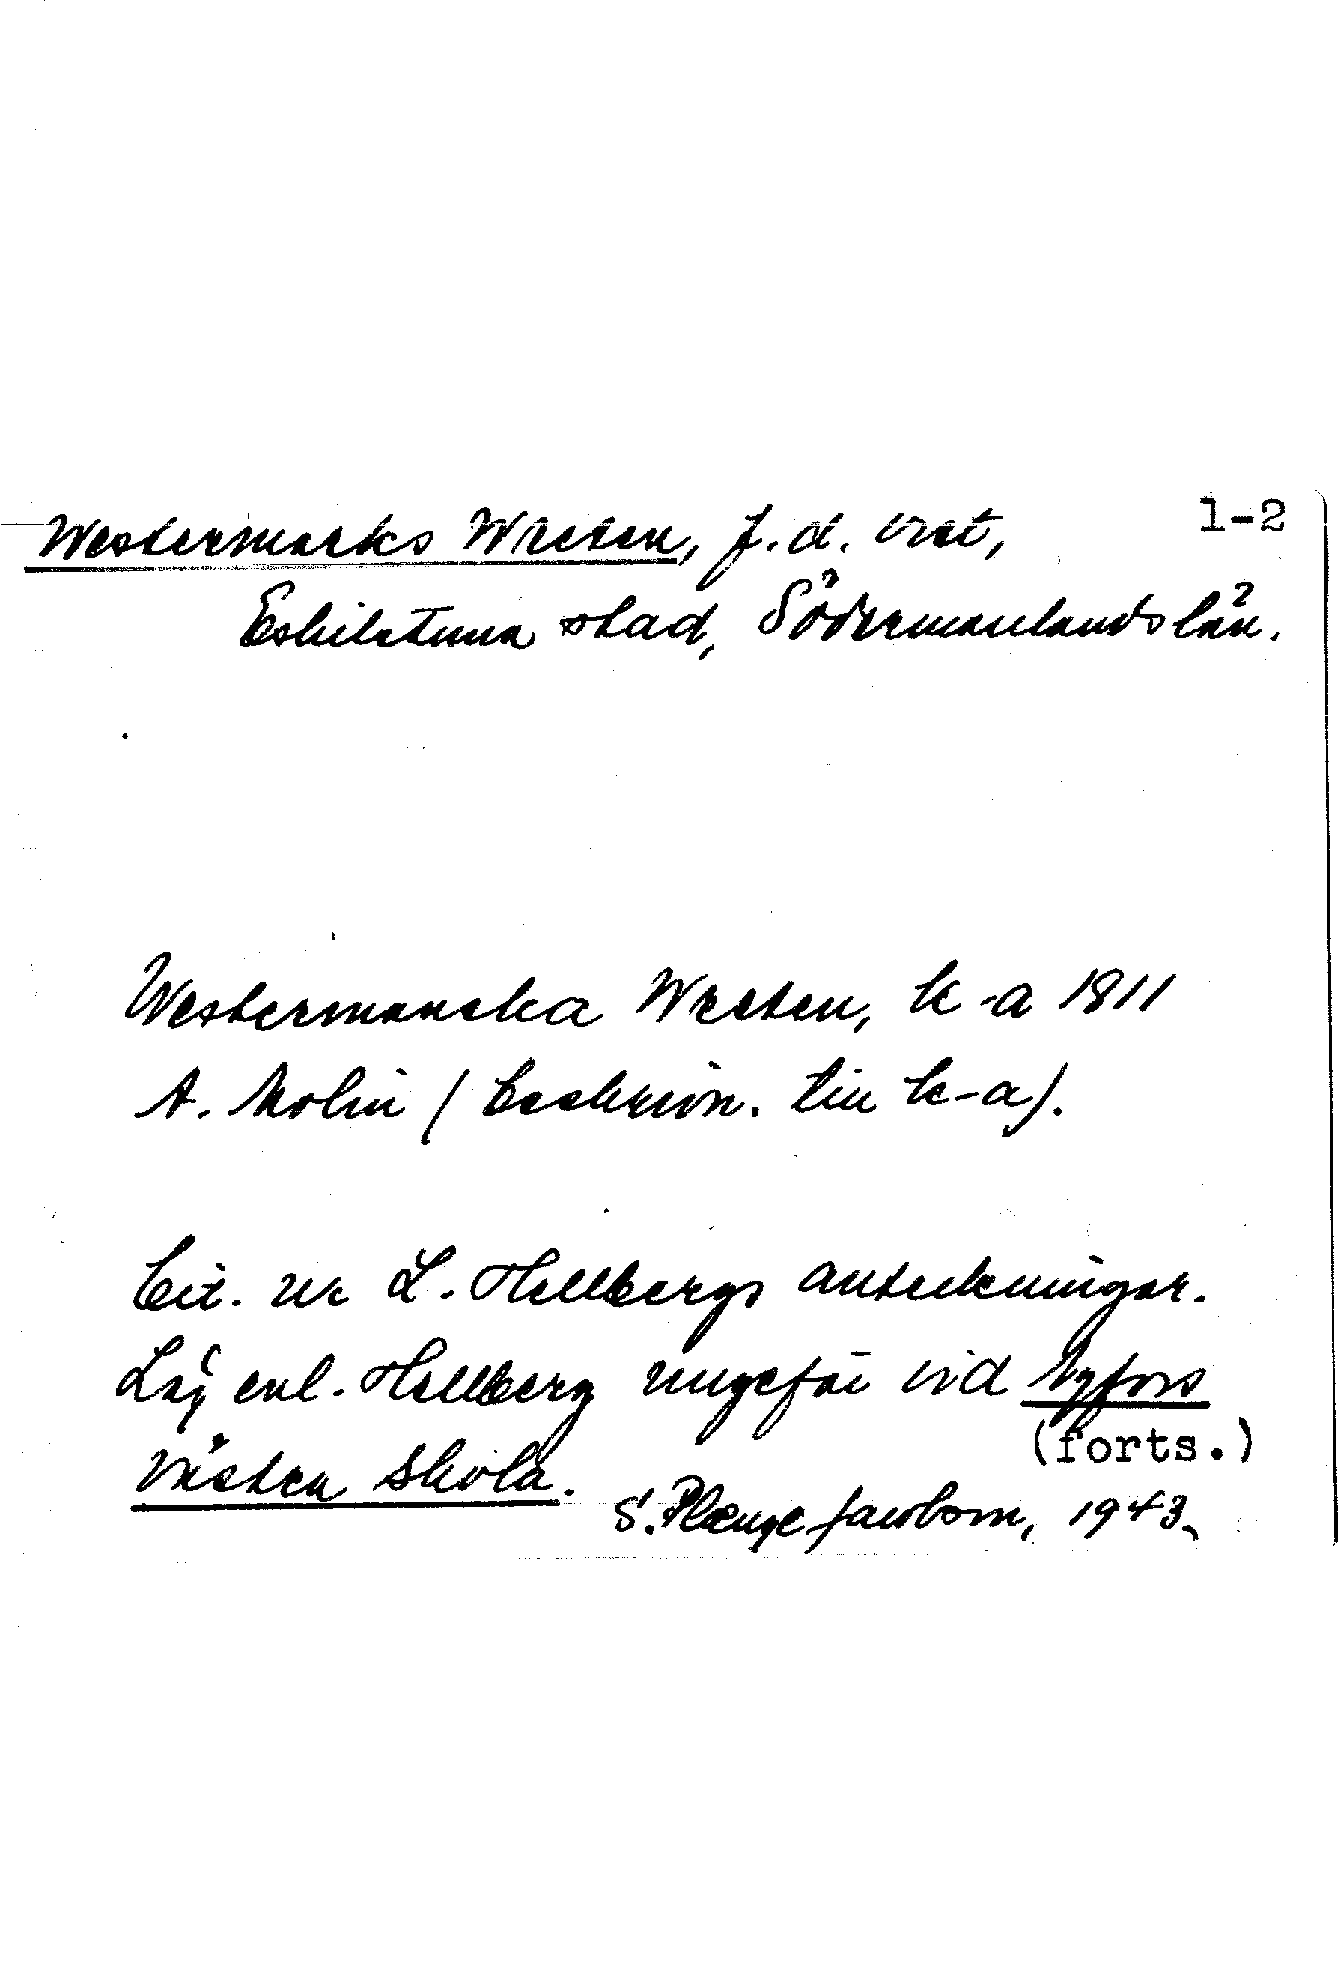 Westermarks Wreten, f.d. vret, 1-2
Eskilstuna stad, Södermanlands län.
Westermanska Wreten, k-a 1811
A. Molin (Beskrivn. till k-a).
Cit. ur L. Hellbergs anteckningar.
Låg enl. Hellberg ungefär vid Nyfors
(forts.)
västra skola.
S. Plænge Jacobson, 1943.